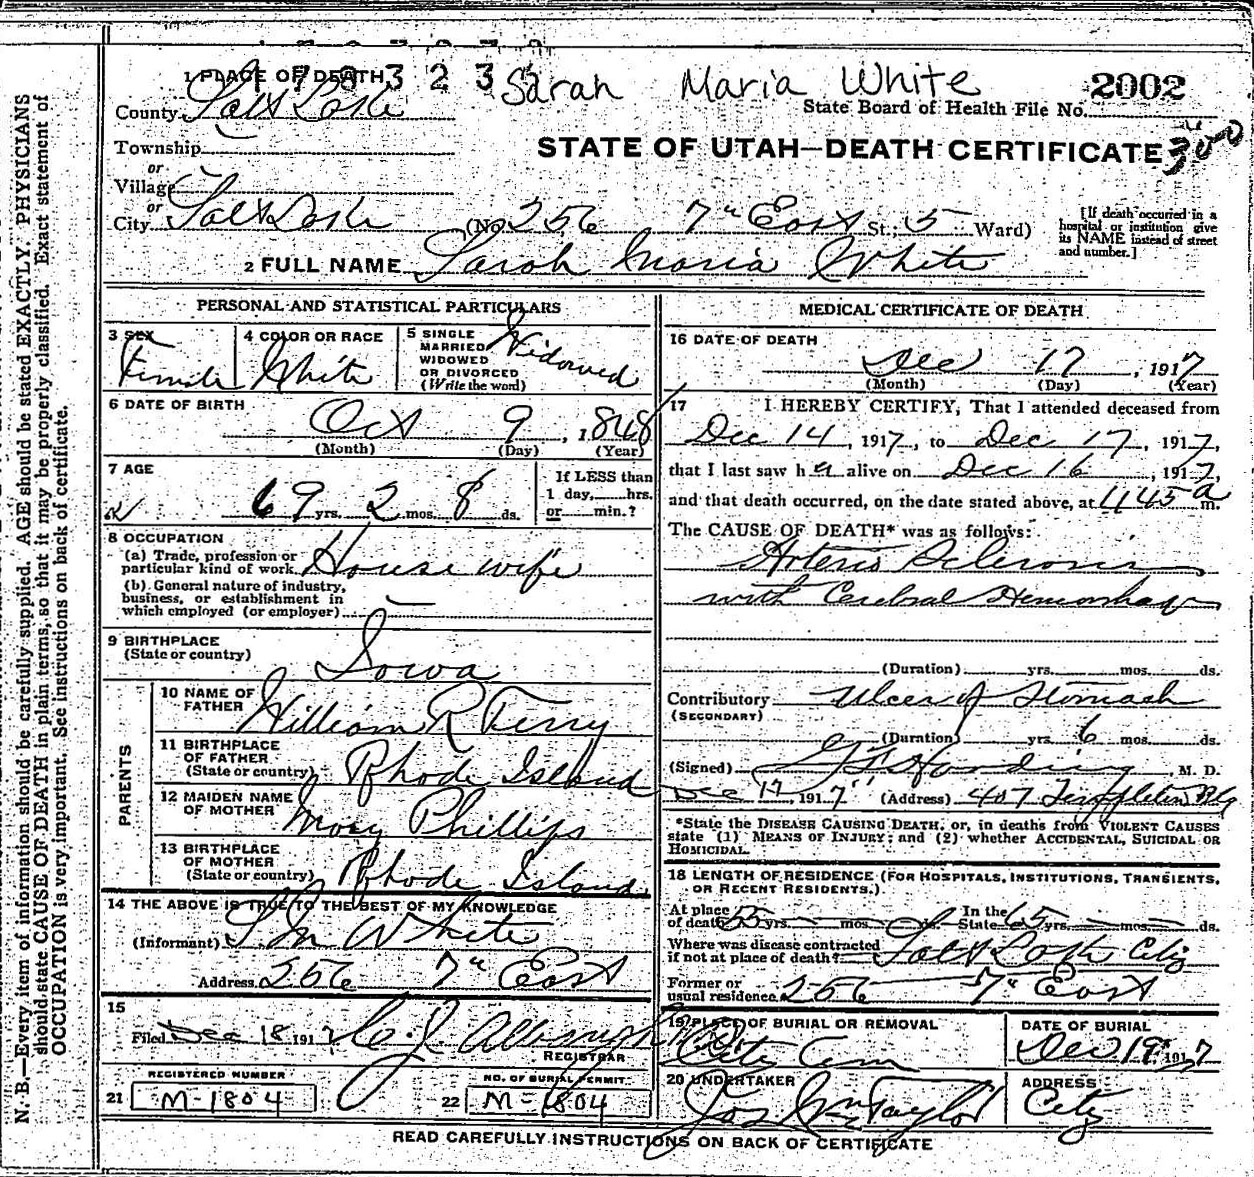 1 PLACE OF DEATH
178323
Sarah Maria White
2002
State Board of Health File No.
County Salt Lake
STATE OF UTAH—DEATH CERTIFICATE
Township
or
Village
or
City Salt Lake (No. 256 7" East St.; 5 Ward)
[If death occurred in a
hospital or institution give
its NAME instead of street
and number.]
2 FULL NAME Sarah Maria White
PERSONAL AND STATISTICAL PARTICULARS
3 SEX Female
4 COLOR OR RACE White
5 SINGLE
MARRIED
WIDOWED
OR DIVORCED
(Write the word)
Widowed
6 DATE OF BIRTH
Oct 9, 1848
(Month) (Day) (Year)
7 AGE
69 yrs. 2 mos. 8 ds.
If LESS than
1 day, hrs.
or min.?
8 OCCUPATION
(a) Trade, profession or
particular kind of work Housewife
(b) General nature of industry,
business, or establishment in
which employed (or employer)
9 BIRTHPLACE
(State or country) Iowa
PARENTS
10 NAME OF
FATHER William R Terry
11 BIRTHPLACE
OF FATHER
(State or country) Rhode Island
12 MAIDEN NAME
OF MOTHER Mary Phillips
13 BIRTHPLACE
OF MOTHER
(State or country) Rhode Island
14 THE ABOVE IS TRUE TO THE BEST OF MY KNOWLEDGE
(Informant) White
Address 256 7" East
15
Filed Dec 18 1917
REGISTRAR
REGISTERED NUMBER
21 M-1804
NO. OF BURIAL PERMIT
22 M-1804
MEDICAL CERTIFICATE OF DEATH
16 DATE OF DEATH
Dec 17, 1917
(Month) (Day) (Year)
17 I HEREBY CERTIFY, That I attended deceased from
Dec 14, 1917, to Dec 17, 1917,
that I last saw her alive on Dec 16, 1917,
and that death occurred, on the date stated above, at 1145 a m.
The CAUSE OF DEATH* was as follows:
Arterio Sclerosis
with Cerebral Hemorrhage
(Duration) yrs. mos. ds.
Contributory Ulcer of Stomach
(SECONDARY)
(Duration) yrs. 6 mos. ds.
(Signed) Harding, M. D.
Dec 17, 1917 (Address) 407 Templeton Bldg
*State the DISEASE CAUSING DEATH, or, in deaths from VIOLENT CAUSES
state (1) MEANS OF INJURY; and (2) whether ACCIDENTAL, SUICIDAL OR
HOMICIDAL.
18 LENGTH OF RESIDENCE (FOR HOSPITALS, INSTITUTIONS, TRANSIENTS,
OR RECENT RESIDENTS.)
At place
of death 55 yrs. mos. ds. In the
State 65 yrs. mos. ds.
Where was disease contracted
if not at place of death? Salt Lake City
Former or
usual residence 256 7" East
19 PLACE OF BURIAL OR REMOVAL
City Cem
DATE OF BURIAL
Dec 19" 1917
20 UNDERTAKER
Jos Wm Taylor
ADDRESS
City
READ CAREFULLY INSTRUCTIONS ON BACK OF CERTIFICATE
N. B.—Every item of information should be carefully supplied. AGE should be stated EXACTLY. PHYSICIANS
should state CAUSE OF DEATH in plain terms, so that it may be properly classified. Exact statement of
OCCUPATION is very important. See instructions on back of certificate.